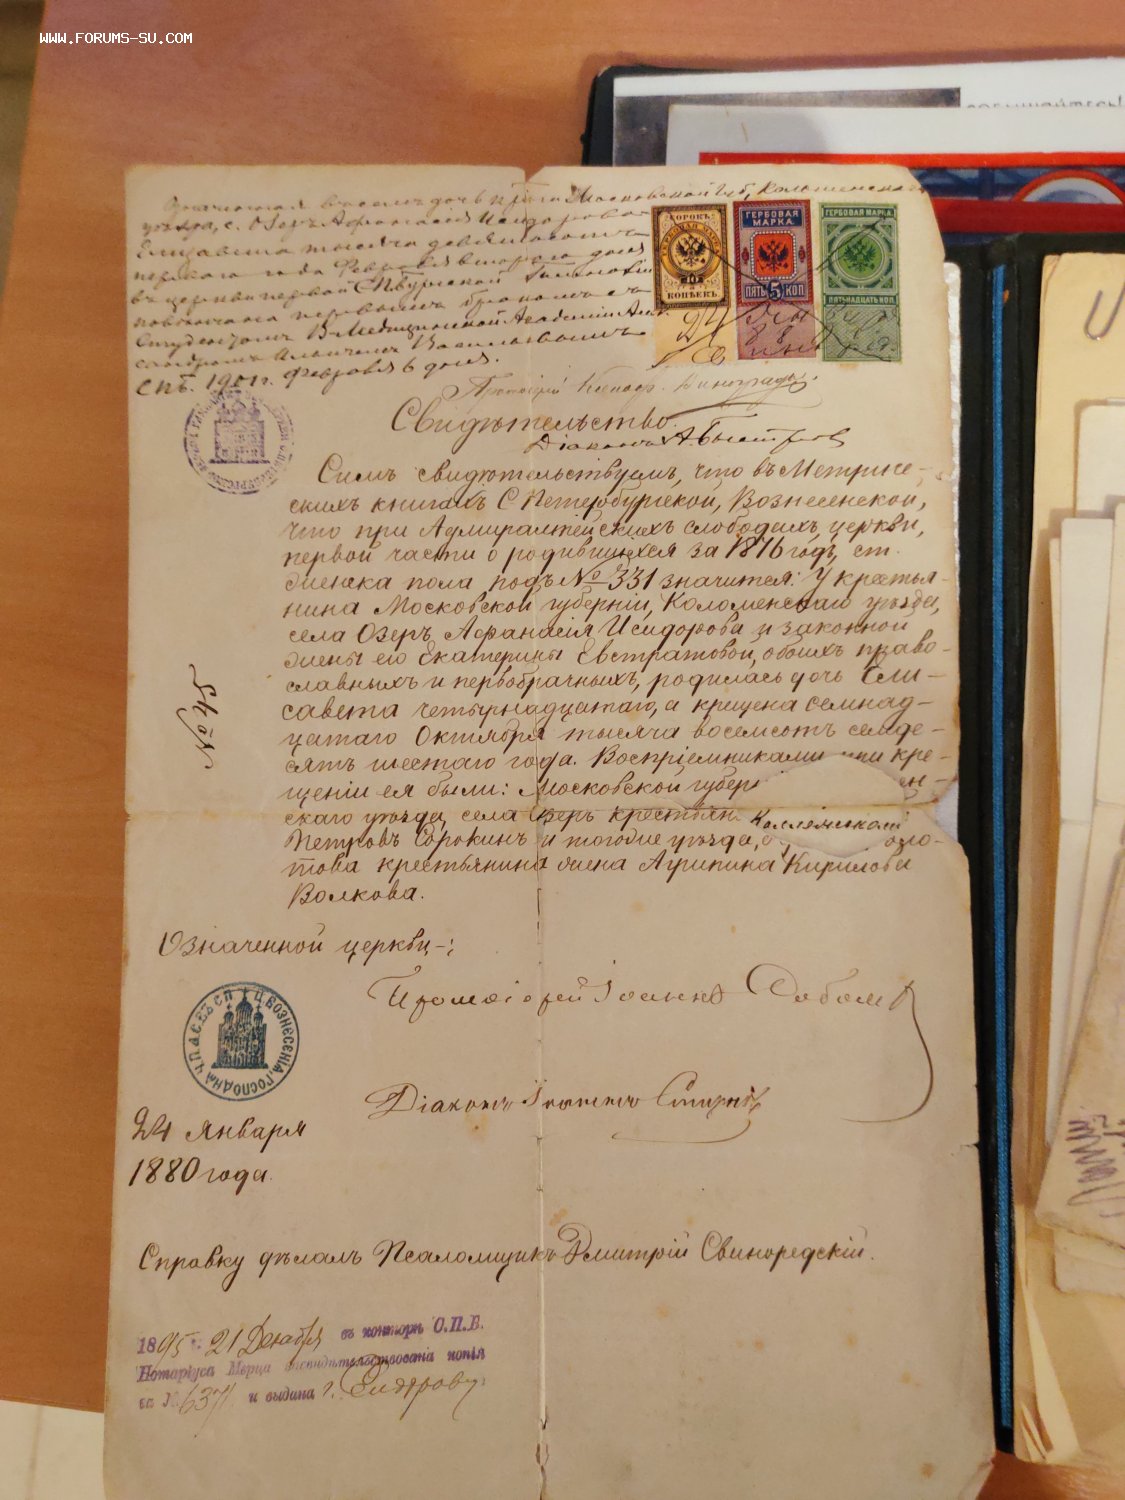 WWW.FORUMS-SU.COM
Означенная въ семъ дочь кр-на Московской губ, Коломенскаго
уѣзда, с. Озеръ Афанасія Исидорова
Елисавета тысяча девятьсотъ
перваго года Февраля втораго дня
въ церкви первой СПбургской Гимназіи
повѣнчана первымъ бракомъ съ
студентомъ В. Медицинской Академіи Але-
Васильевымъ
СПб. 1901 г. Февраля 6 дня.
СОРОКЪ
10
КОПѢЕКЪ
ГЕРБОВАЯ
МАРКА.
ПЯТЬ 5 КОП
ГЕРБОВАЯ МАРКА.
ПЯТНАДЦАТЬ КОП.
Протоіерей
Свидѣтельство.
Діаконъ А Быстровъ
Симъ свидѣтельствуемъ, что въ Метриче-
скихъ книгахъ С-Петербургской, Вознесенской,
что при Адмиралтейскихъ слободахъ, церкви,
первой части о родившихся за 1876 годъ, ст.
женска пола подъ № 331 значится: У крестья-
нина Московской губерніи, Коломенскаго уѣзда,
села Озеръ, Афанасія Исидорова и законной
жены его Екатерины Евстратовой, обоихъ право-
славныхъ и первобрачныхъ, родилась дочь Ели-
савета четырнадцатаго, а крещена семнад-
цатаго Октября тысяча восемсотъ семде-
сятъ шестаго года. Воспріемниками при кре-
щеніи ея были: Московской губер ен-
скаго уѣзда, села Озеръ крестьян Коломенскаго
Петровъ Сорокинъ и тогоже уѣзда, оло-
това крестьянина жена Агрипина Кирилова
Волкова.
№ 45
Означенной церкви:
Протоіерей Іоаннъ
Ц. ВОЗНЕСЕНІЯ ГОСПОДНЯ
Діаконъ Смирновъ
24 Января
1880 года.
Справку дѣлалъ Псаломщикъ Дмитрій Свиноредскій.
1895 г. 21 Декабря въ конторѣ С.П.Б.
Нотаріуса Мерца засвидѣтельствована копія
за № 6371 и выдана г. Сидорову.